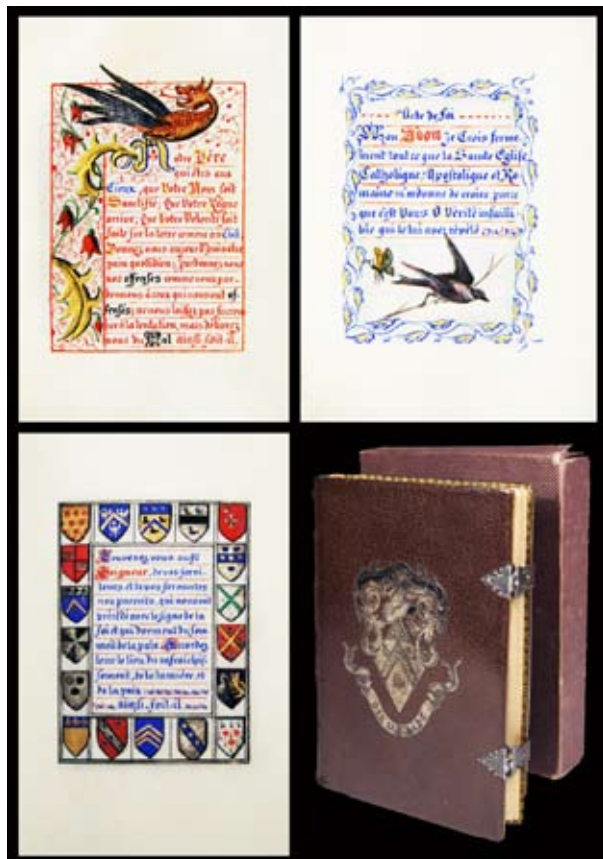 Notre Père
qui êtes aux
Cieux, que Votre Nom soit
Sanctifié, Que Votre Règne
arrive; Que Votre Volonté soit
faite sur la terre comme au Ciel.
Donnez nous aujourd'hui notre
pain quotidien; Pardonnez nous
nos offenses comme nous par-
donnons à ceux qui nous ont of-
fensés; ne nous laissez pas succom-
ber à la tentation, mais délivrez
nous du Mal ainsi soit-il.
Acte de foi
Mon Dieu Je Crois ferme-
ment tout ce que la Sainte Eglise
Catholique, Apostolique et Ro-
maine m'ordonne de croire parce
que c'est Vous O Vérité infailli-
ble qui le lui avez révélé
Souvenez vous aussi
Seigneur, de vos servi-
teurs et
nos parents, qui nous ont
précédé avec le signe de la
foi et qui dorment du som-
meil de la paix. Accordez
leur le lieu du rafraîchis-
sement, de la lumière et
de la paix
ainsi soit-il